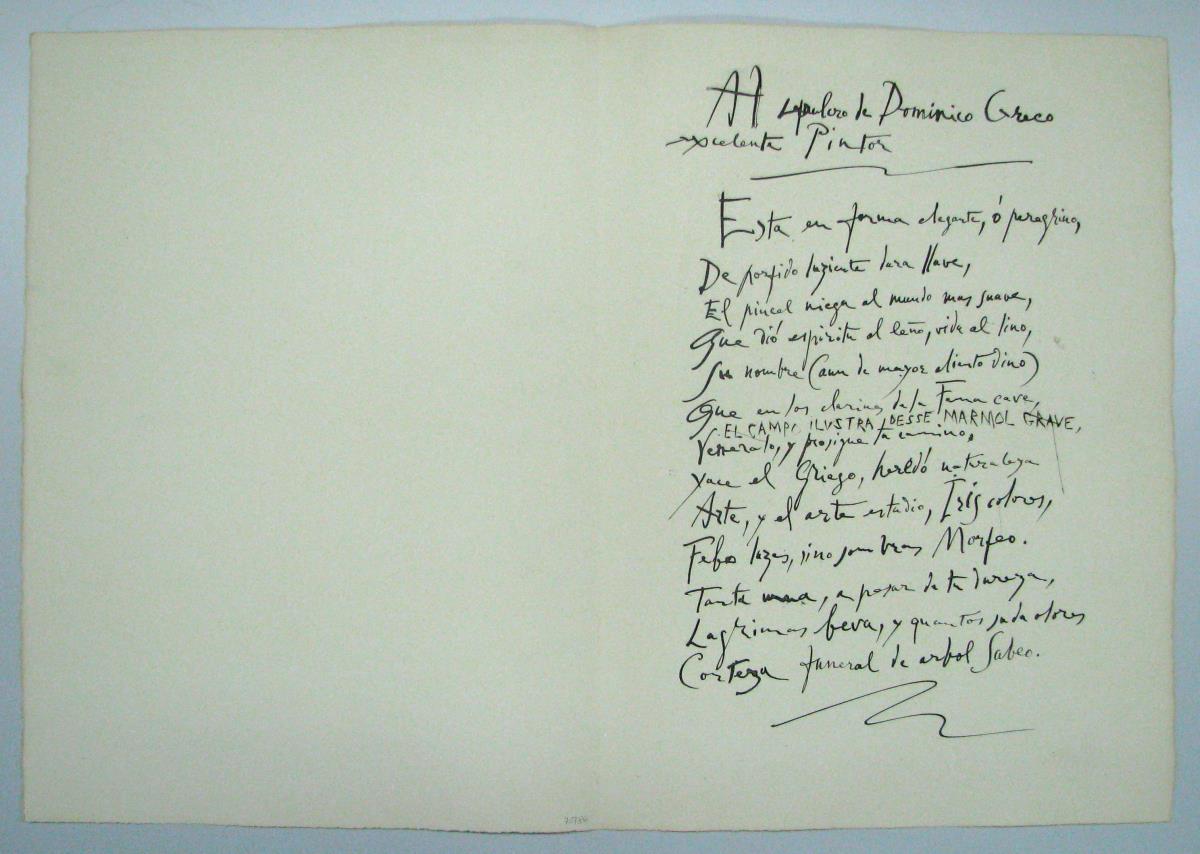 Al sepulcro de Dominico Greco
excelente Pintor
Esta en forma elegante, ó peregrino,
De porfido luziente dura llave,
El pincel niega al mundo mas suave,
Que dió espiritu al leño, vida al lino,
Su nombre (aun de mayor aliento dino)
Que en los clarines de la Fama cave,
EL CAMPO ILUSTRA DESSE MARMOL GRAVE,
Veneralo, y prosigue tu camino,
Yace el Griego, heredó naturaleza
Arte, y el arte estudio, Iris colores,
Febo luzes, sino sombras Morfeo.
Tanta urna, a pesar de tu dureza,
Lagrimas beva, y quantos suda olores
Corteza funeral de arbol Sabeo.